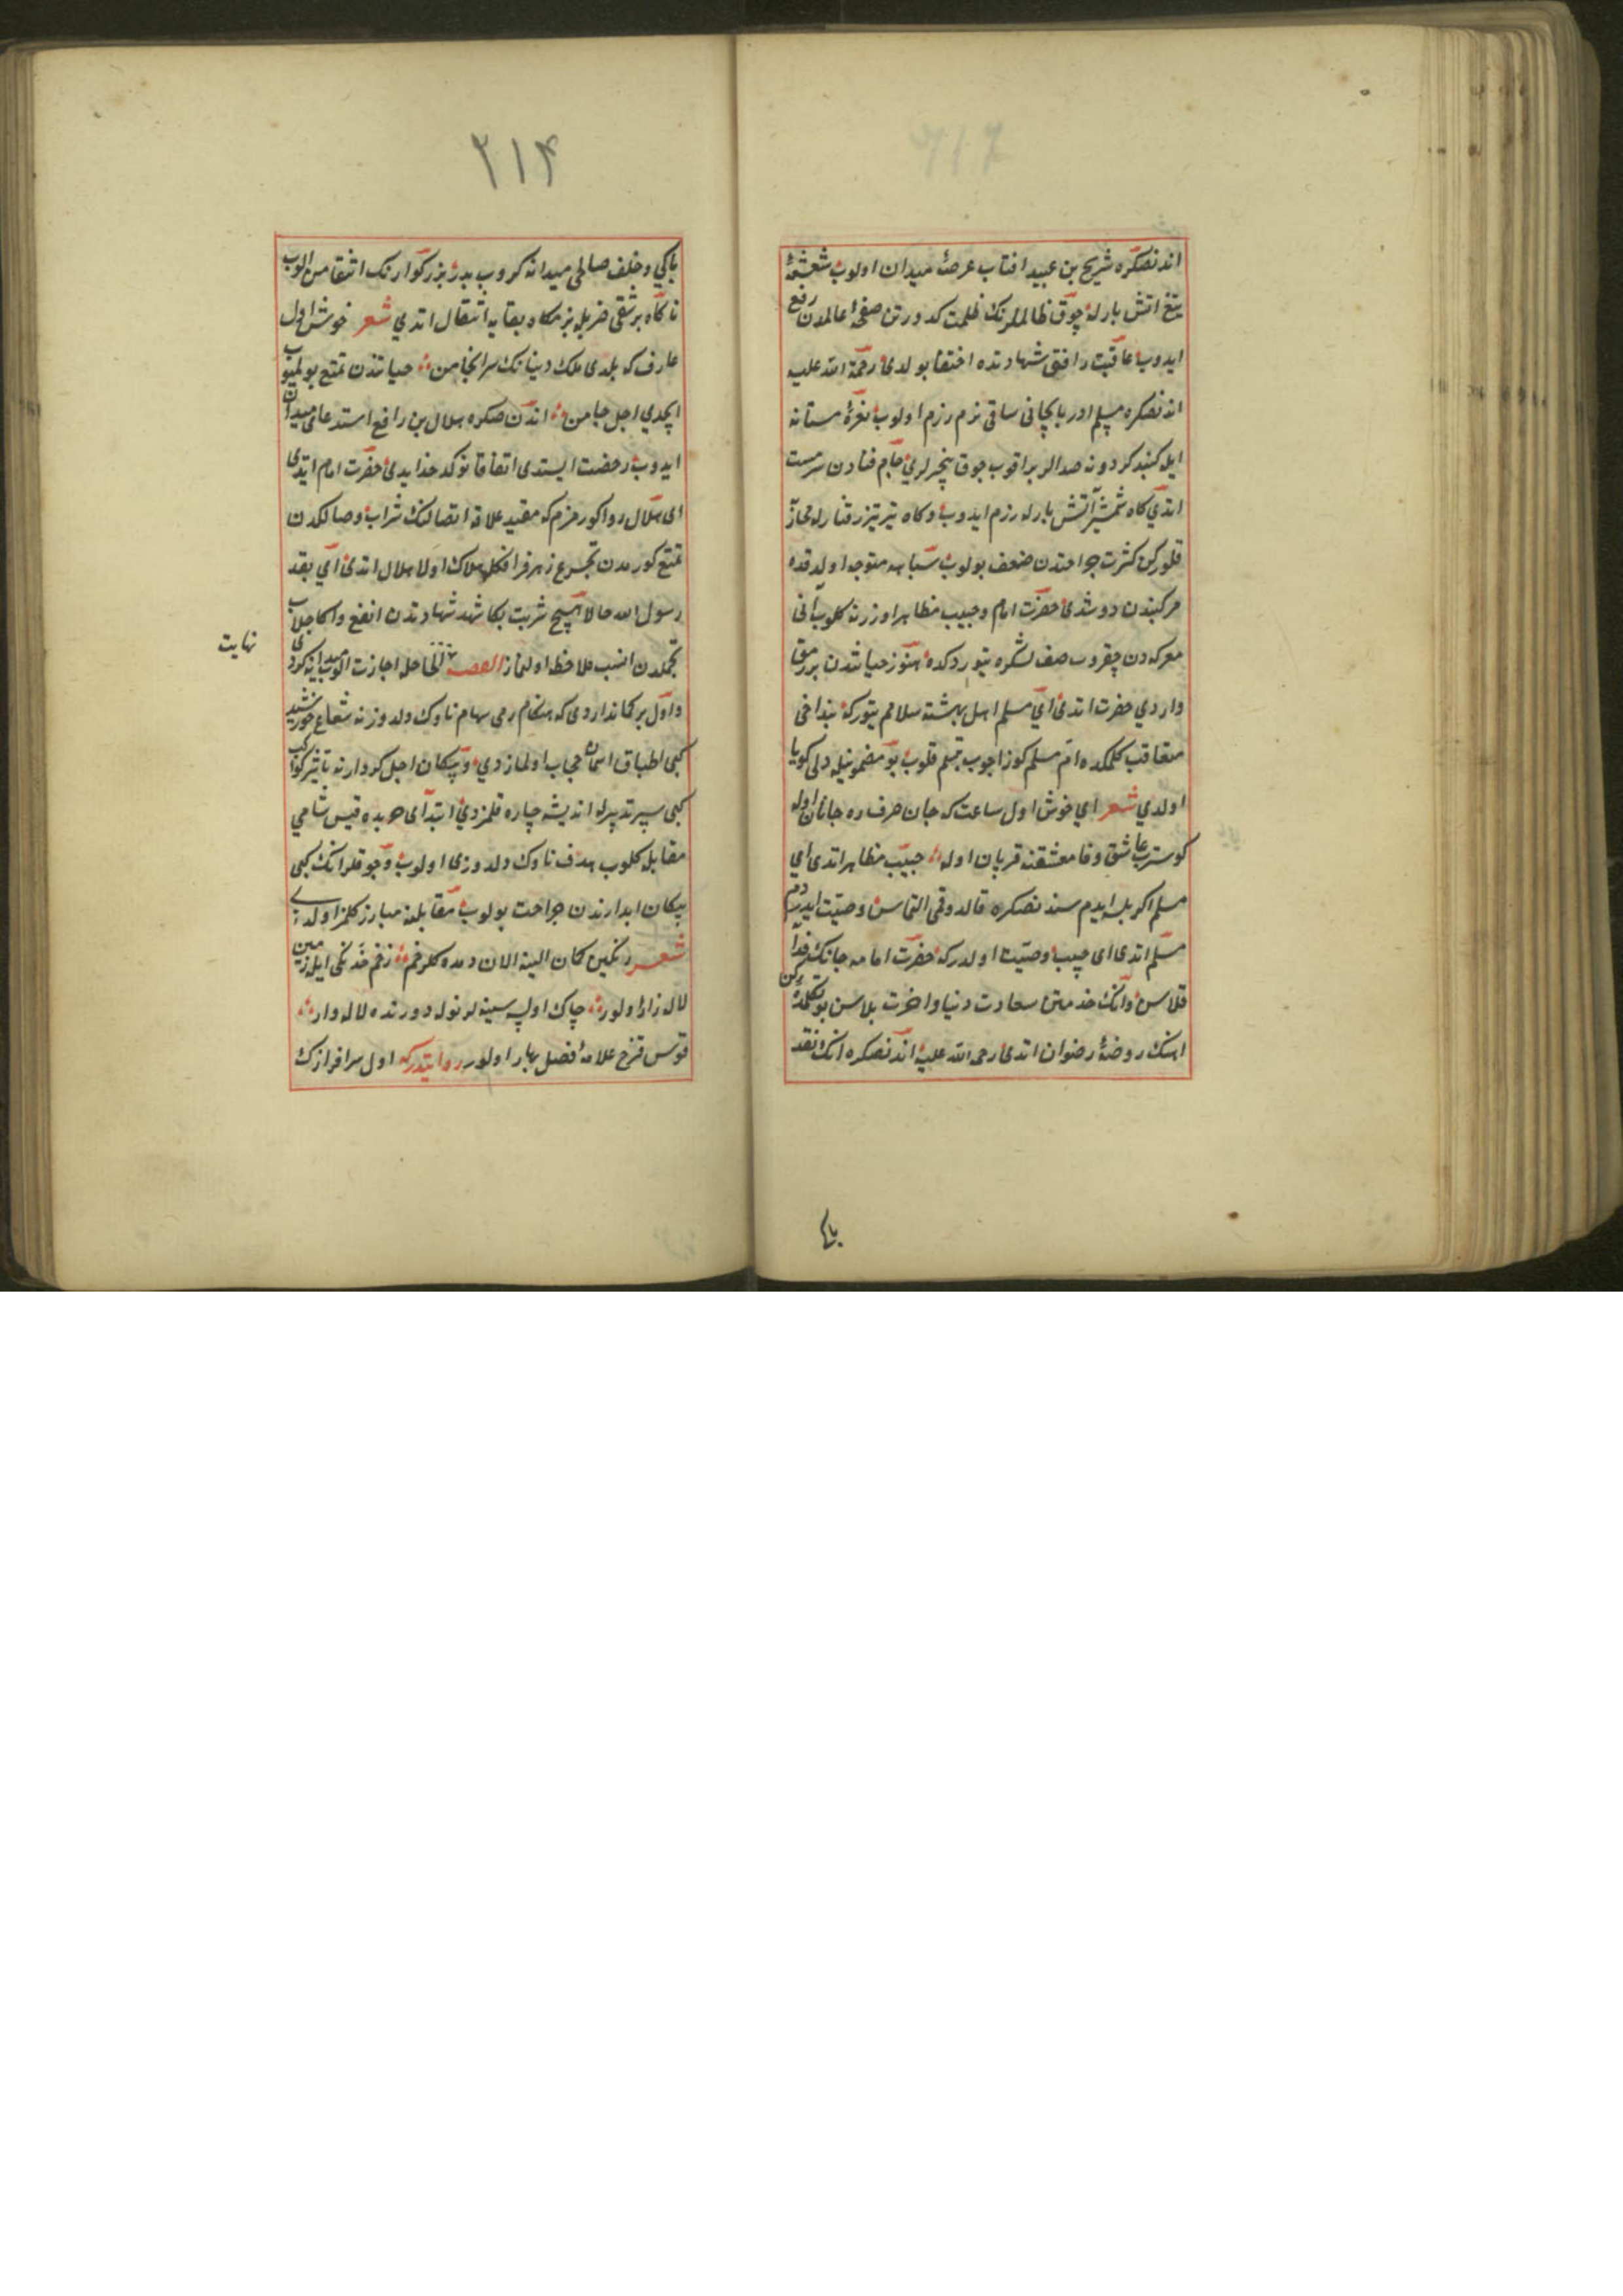 اندنصكره شريح بن عبيد افتاب عرصهٔ ميدان اولوب شعشعهٔ
تيغ اتش بارله چوق ظالملرنك ظلمت كدورتن صفحهٔ عالمدن رفع
ايدوب عاقبت افق شهادتده اختفا بولدى رحمة الله عليه
اندنصكره مسلم اذربايجانى ساقى بزم رزم اولوب نعرهٔ مستانه
ايله كنبد كردونه صدالر براقوب چوق بيخبرلرى جام فنادن سرمست
ايتدي كاه شمشير آتش بارله رزم ايدوب وكاه تير تيز رفتارله محاربه
قلوركن كثرت جراحتدن ضعف بولوب سپاهه متوجه اولدقده
مركبندن دوشدى حضرت امام وحبيب مظاهر اوزرنه كلوب آنى
معركه دن چقروب صف لشكره يتوردكده هنوز حياتندن بر رمق
واردي حضرت اتدى اى مسلم اهل بهشته سلامم يتوركه بنداخى
متعاقب كلمكده ام مسلم كوز اچوب تبسم قلوب بو مضمونيله دلى كويا
اولدي شعر اي خوش اول ساعت كه جان صرف ره جانان اوله
كوسترب عاشق وفا معشقنه قربان اوله حبيب مظاهر اتدى اى
مسلم اكر بلسه ايدم سندنصكره قالدوقمى التماس وصيت ايدردم
مسلم اتدى اى حبيب وصيت اولدركه حضرت امامه جانك فدا
قلاسن وانك خدمتن سعادت دنيا واخرت بلاسن بو كلمه دن
اهنك روضهٔ رضوان اتدى رحمة الله عليه اندنصكره انك نقد
بٮاكى
٢١۴
پاكي وخلف صالحى ميدانه كروب پدر بزركوارنك انتقامن الوب
ناكاه بر شقى ضربله بزمكاه بقايه انتقال اتدي شعر خوش اول
عارف كه بلدى ملك دنيانك سرانجامن حياتندن تمتع بولميوب
ايچدي اجل جامن اندن صكره هلال بن رافع استدعاى ميدان
ايدوب رخصت ايستدى اتفاقا نوكدخدا يدى حضرت امام ايتدى
اى هلال روا كورمزم كه مقيد علاقهٔ اتصالنك شراب وصالكدن
تمتع كورمدن تجرع زهر فراقكله هلاك اولا هلال اتدى اى نقد
رسول الله حالا هيچ شربت بكا شهد شهادتدن انفع واكا جلاب
تجملدن انسب ملاحظه اولنماز القصه الحاصل اجازت الوب ميدانه كردى
نهايت
واول بر كماندار ودى كه هنكام رمى سهام ناوك دلدوزنه شعاع خورشيد
كبى اطباق اسمان حجاب اولمازدي وپيكان اجل كردارنه تاثير كواكب
كبى سپر تدبيرله انديشه چاره قلمزدي ابتداى حربده قيس شامي
مقابل كلوب هدف ناوك دلدوزى اولوب وچوقلر انك كبى
پيكان ابدارندن جراحت بولوب مقابلنه مبارز كلمز اولدى
شعر رنكين كمان الينه الان دمده كلرخم زخم خدنكى ايله زمين
لاله زار اولور چاك اولسه سينه لر نوله دورنده لاله وار
قوس قزح علامهٔ فصل بهار اولور روايتدركه اول سرافرازك